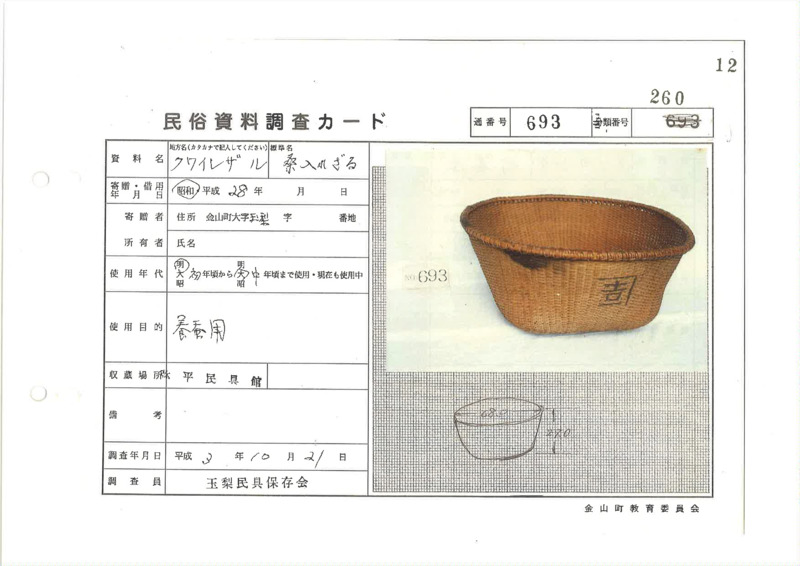 12
260
民俗資料調査カード
通番号 693 類番号 693
資料名 地方名(カタカナで記入してください) クワイレザル 標準名 桑入れざる
寄贈・借用年月日 昭和 平成 28年 月 日
寄贈者 住所 金山町大字玉梨 字 番地
所有者 氏名
使用年代 明 大 昭 初年頃から 明 大 昭 中年頃まで使用・現在も使用中
NO 693
使用目的 養蚕用
収蔵場所 平民具館
備考
68.0
27.0
調査年月日 平成 3年 10月 21日
調査員 玉梨民具保存会
金山町教育委員会